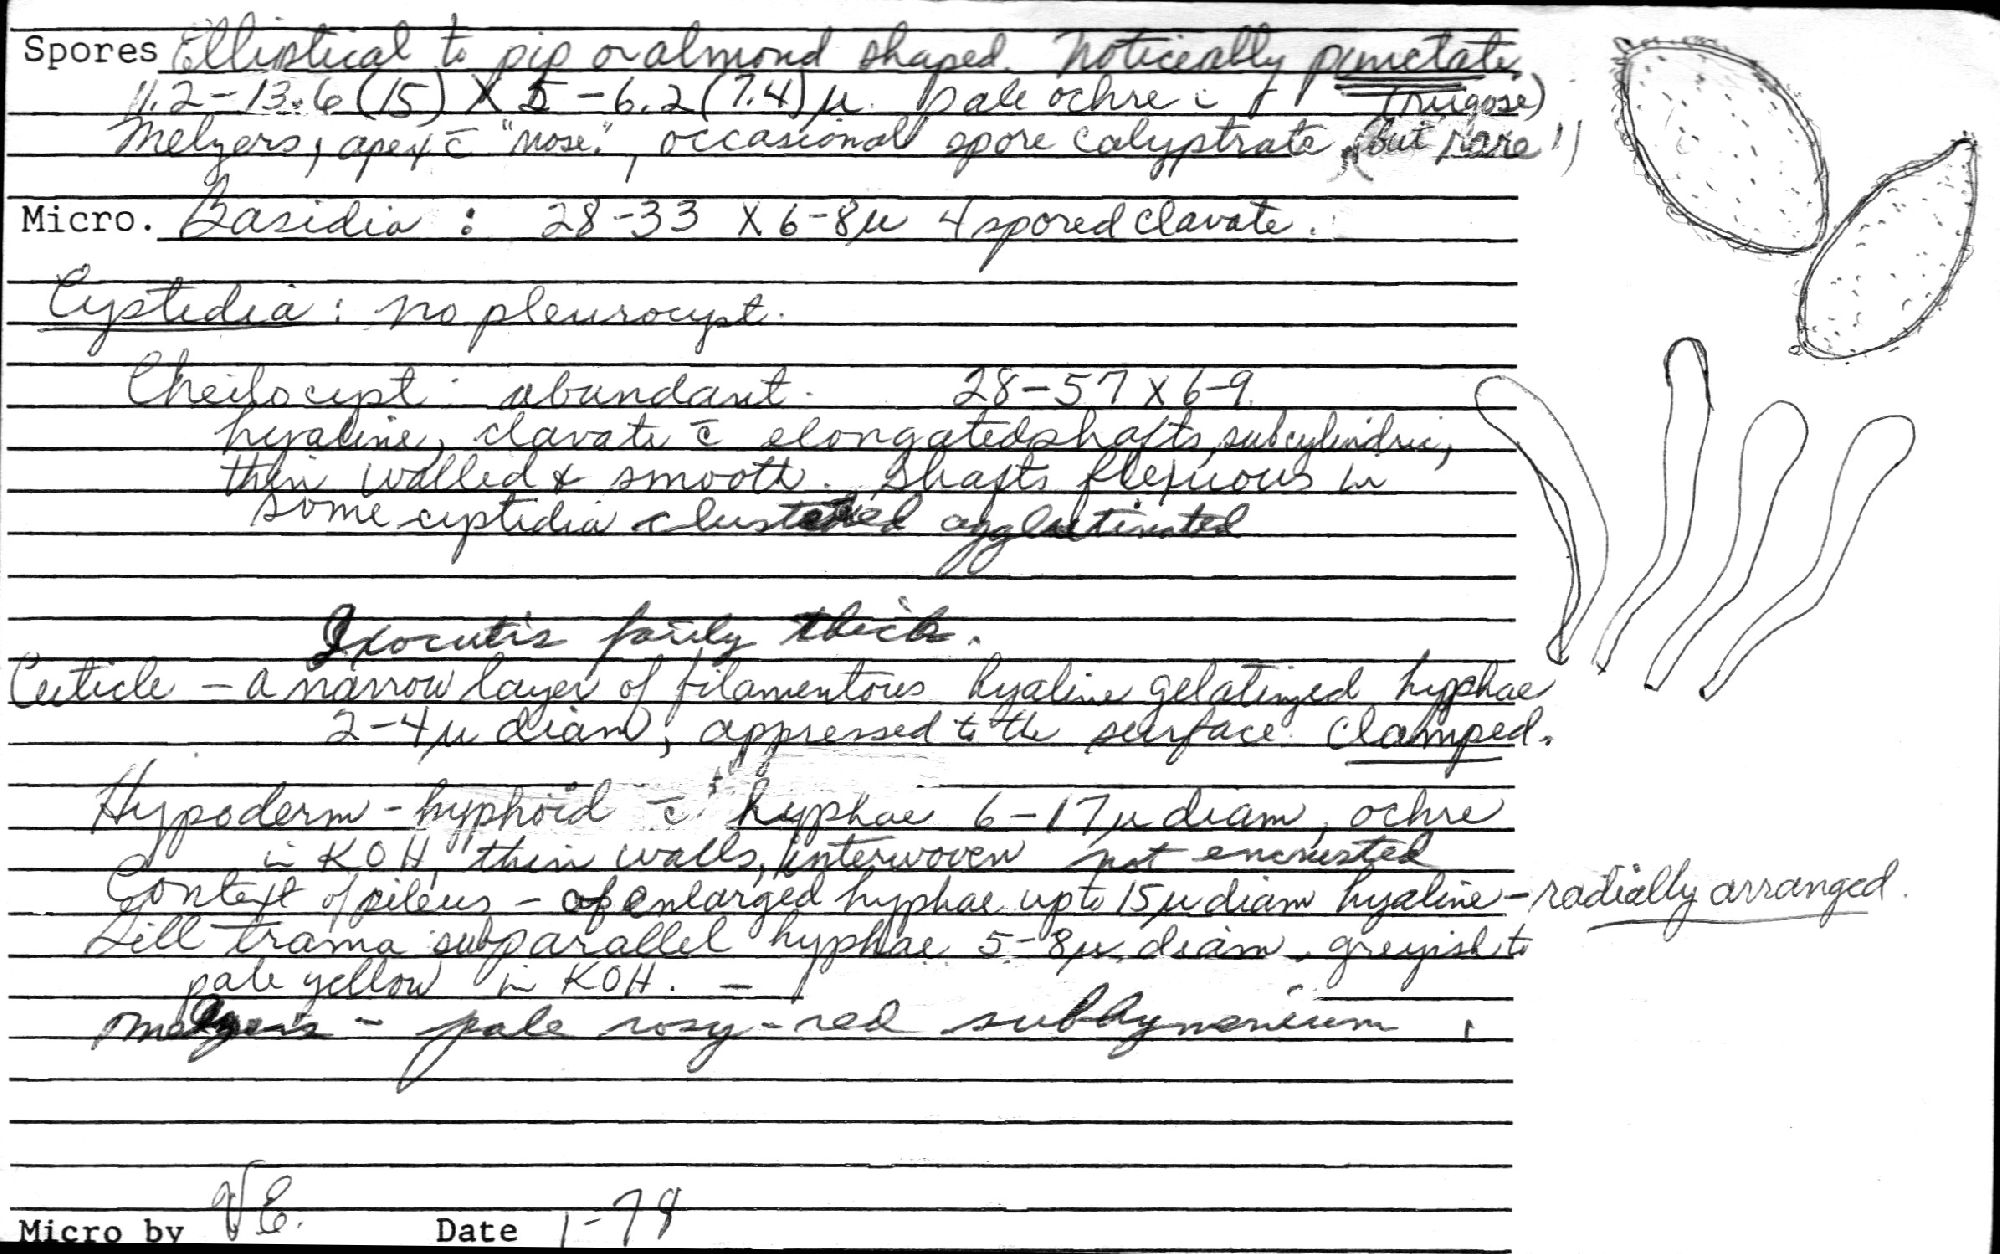 Spores Elliptical to pip or almond shaped. Noticeably punctate
11.2-13.6(15) X 5-6.2(7.4)µ. pale ochre in (rugose)
Melzers, apex c̄ "nose", occasional spore calyptrate (but rare!)
Micro. Basidia : 28-33 X 6-8µ 4 spored clavate.
Cystidia : no pleurocyst.
Cheilocyst : abundant. 28-57 X 6-9
hyaline, clavate c̄ elongated shafts, subcylindric,
thin walled & smooth. Shafts flexuous in
some cystidia clustered agglutinated
Ixocutis fairly thick.
Cuticle - a narrow layer of filamentous hyaline gelatinized hyphae
2-4µ diam, appressed to the surface. Clamped.
Hypoderm - hyphoid c̄ hyphae 6-17µ diam, ochre
in KOH, thin walls, interwoven not encrusted
Context of pileus - of enlarged hyphae up to 15µ diam hyaline - radially arranged.
Gill trama subparallel hyphae 5-8µ diam, greyish to
pale yellow in KOH. -
Melzers - pale rosy-red subhymenium.
Micro by VE. Date 1-78